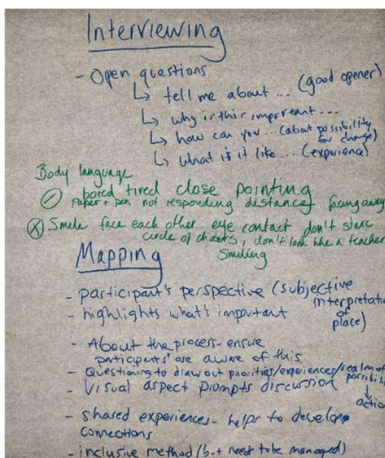 Interviewing
- Open questions
↳ tell me about ... (good opener)
↳ why is this important ...
↳ how can you ... (about possibility for change)
↳ what is it like .... (experience)
Body language
bored tired close pointing
Paper + pen not responding distance facing away
Smile face each other eye contact don't stare
circle of chairs, don't look like a teacher
Smiling
Mapping
- participant's perspective (subjective interpretation of place)
- highlights what's important
- About the process - ensure
participants are aware of this
- Questioning to draw out priorities/experiences/realm of possibility
- Visual aspect prompts discussion
action
- shared experiences - helps to develop
connections
- inclusive method (but need to be managed)